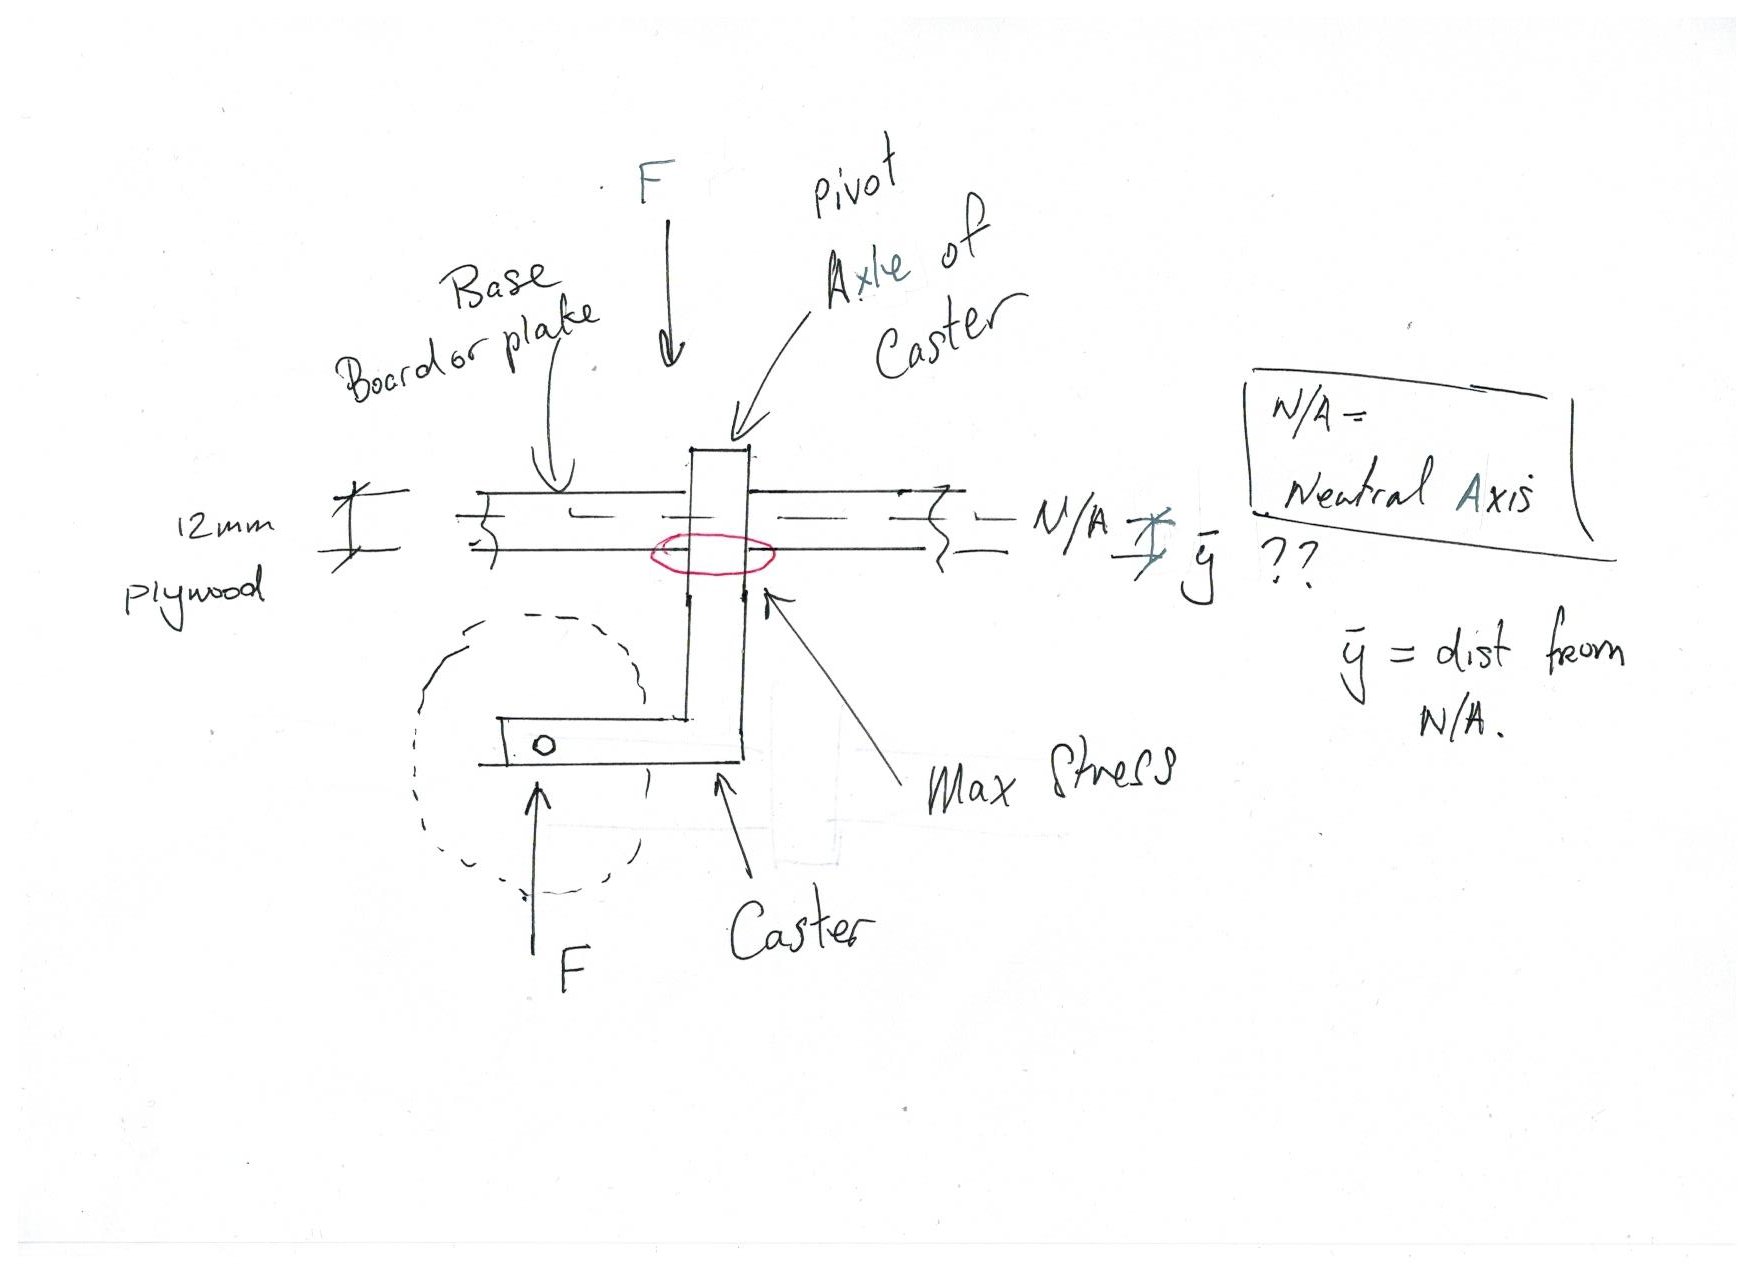 F
Pivot
Axle of
Caster
Base
Board or plate
N/A =
Neutral Axis
12mm
plywood
N/A
ȳ ??
ȳ = dist from
N/A.
Max Stress
Caster
F